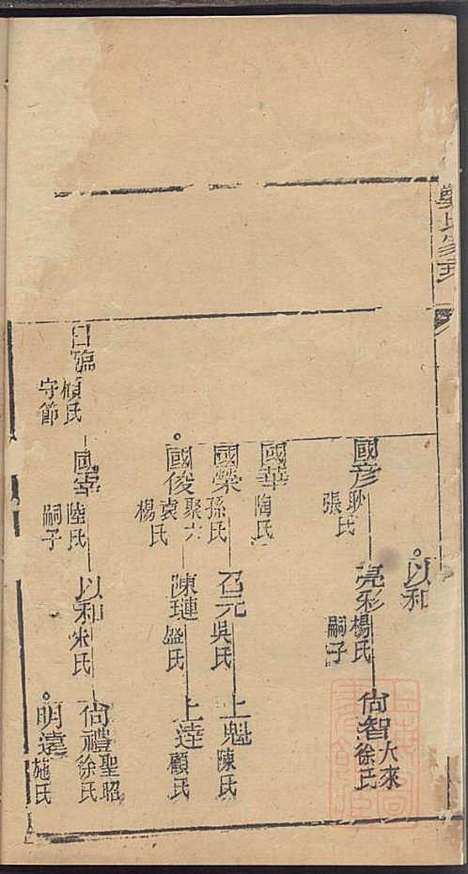 以和
國彥 耿氏 張氏
亮彩 楊氏 嗣子
尙智 大來 徐氏
國華 陶氏
國榮 孫氏
召元 吳氏
上魁 陳氏
國俊 聚六 袁氏 楊氏
陳璉 盛氏
上達 顧氏
日臨 傾氏 守節
國宰 陸氏 嗣子
以和 朱氏
尙禮 聖昭 徐氏
明遠 施氏